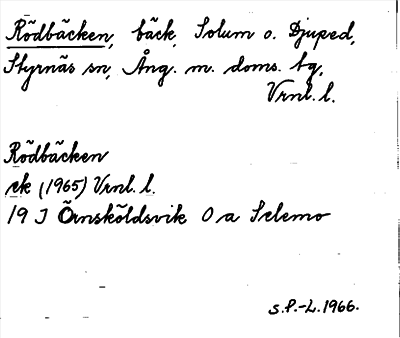 Rödbäcken, bäck, Solum o. Djuped,
Styrnäs sn, Ång. m. doms. tg,
Vrnl. l.
Rödbäcken
ek (1965) Vrnl. l.
19 J Örnsköldsvik O a Selemo
S.P.-L. 1966.